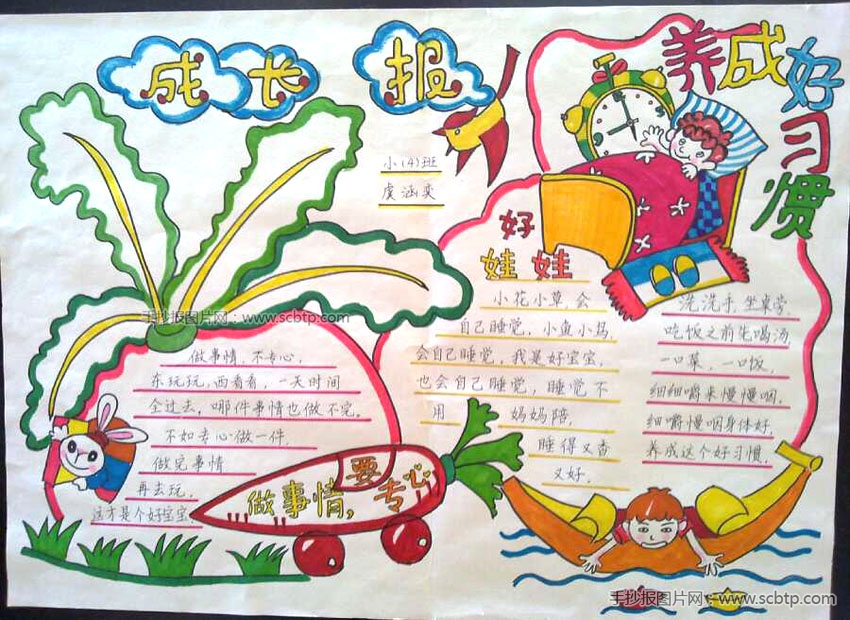 成长报
养成好习惯
小(4)班
虞涵奕
好
娃娃
手抄报图片网:www.scbtp.com
做事情,不专心,
东玩玩,西看看,一天时间
全过去,哪件事情也做不完。
不如专心做一件,
做完事情
再去玩,
这才是个好宝宝。
做事情,要专心
小花小草会
自己睡觉,小鱼小鸟
会自己睡觉,我是好宝宝,
也会自己睡觉,睡觉不
用 妈妈陪,
睡得又香
又好。
洗洗手,坐桌旁
吃饭之前先喝汤,
一口菜,一口饭,
细细嚼来慢慢咽,
细嚼慢咽身体好,
养成这个好习惯。
手抄报图片网:www.scbtp.com